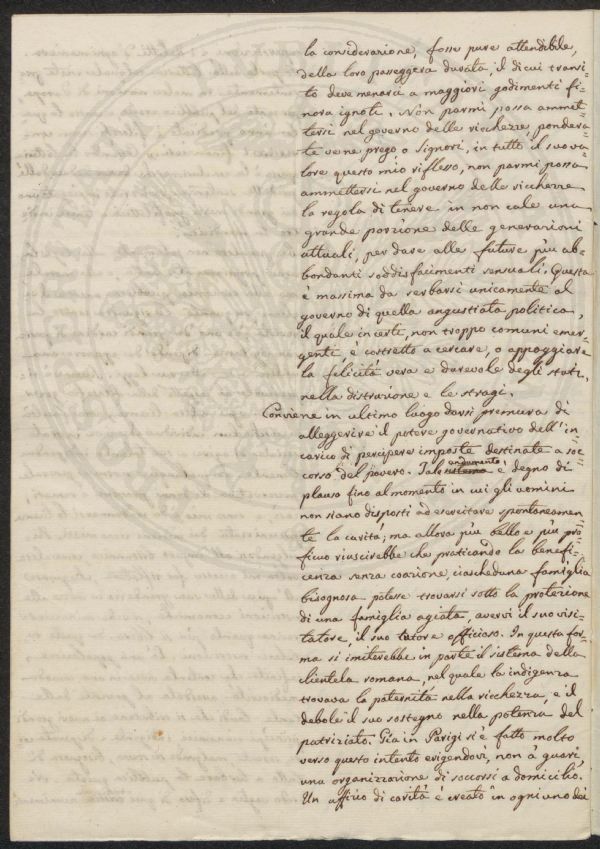 la considerazione, fosse pure attendibile,
della loro passeggera durata, il di cui transi-
to deve menarci a maggiori godimenti fi-
nora ignoti. Non parmi possa ammet-
tersi nel governo delle ricchezze, pondera-
te vene prego o Signori, in tutto il suo va-
lore questo mio riflesso, non parmi possa
ammettersi nel governo delle ricchezze
la regola di tenere in non cale una
grande porzione delle generazioni
attuali, per dare alle future più ab-
bondanti soddisfacimenti sensuali. Questa
è massima da serbarsi unicamente al
governo di quella angustiata politica,
il quale in certi, non troppo comuni emer-
genti, è costretto a cercare, o appoggiare
la felicità vera e durevole degli stati,
nella distruzione e le stragi.
Conviene in ultimo luogo darsi premura di
alleggerire il potere governativo dell'in-
carico di percipere imposte destinate a soc-
corso del povero. Tale andamento è degno di
plauso fino al momento in cui gli uomini
non siano disposti ad esercitare spontaneamen-
te la carità; ma allora più bello e più pro-
ficuo riuscirebbe che praticando la benefi-
cenza senza coazione, ciascheduna famiglia
bisognosa potesse trovarsi sotto la protezione
di una famiglia agiata, avervi il suo visi-
tatore, il suo tutore officioso. In questa for-
ma si imiterebbe in parte il sistema della
clientela romana, nel quale la indigenza
trovava la paternità nella ricchezza, e il
debole il suo sostegno nella potenza del
patriziato. Già in Parigi si è fatto molto
verso questo intento erigendovi, non à guari
una organizzazione di soccorsi a domicilio.
Un uffizio di carità è creato in ogni uno dei